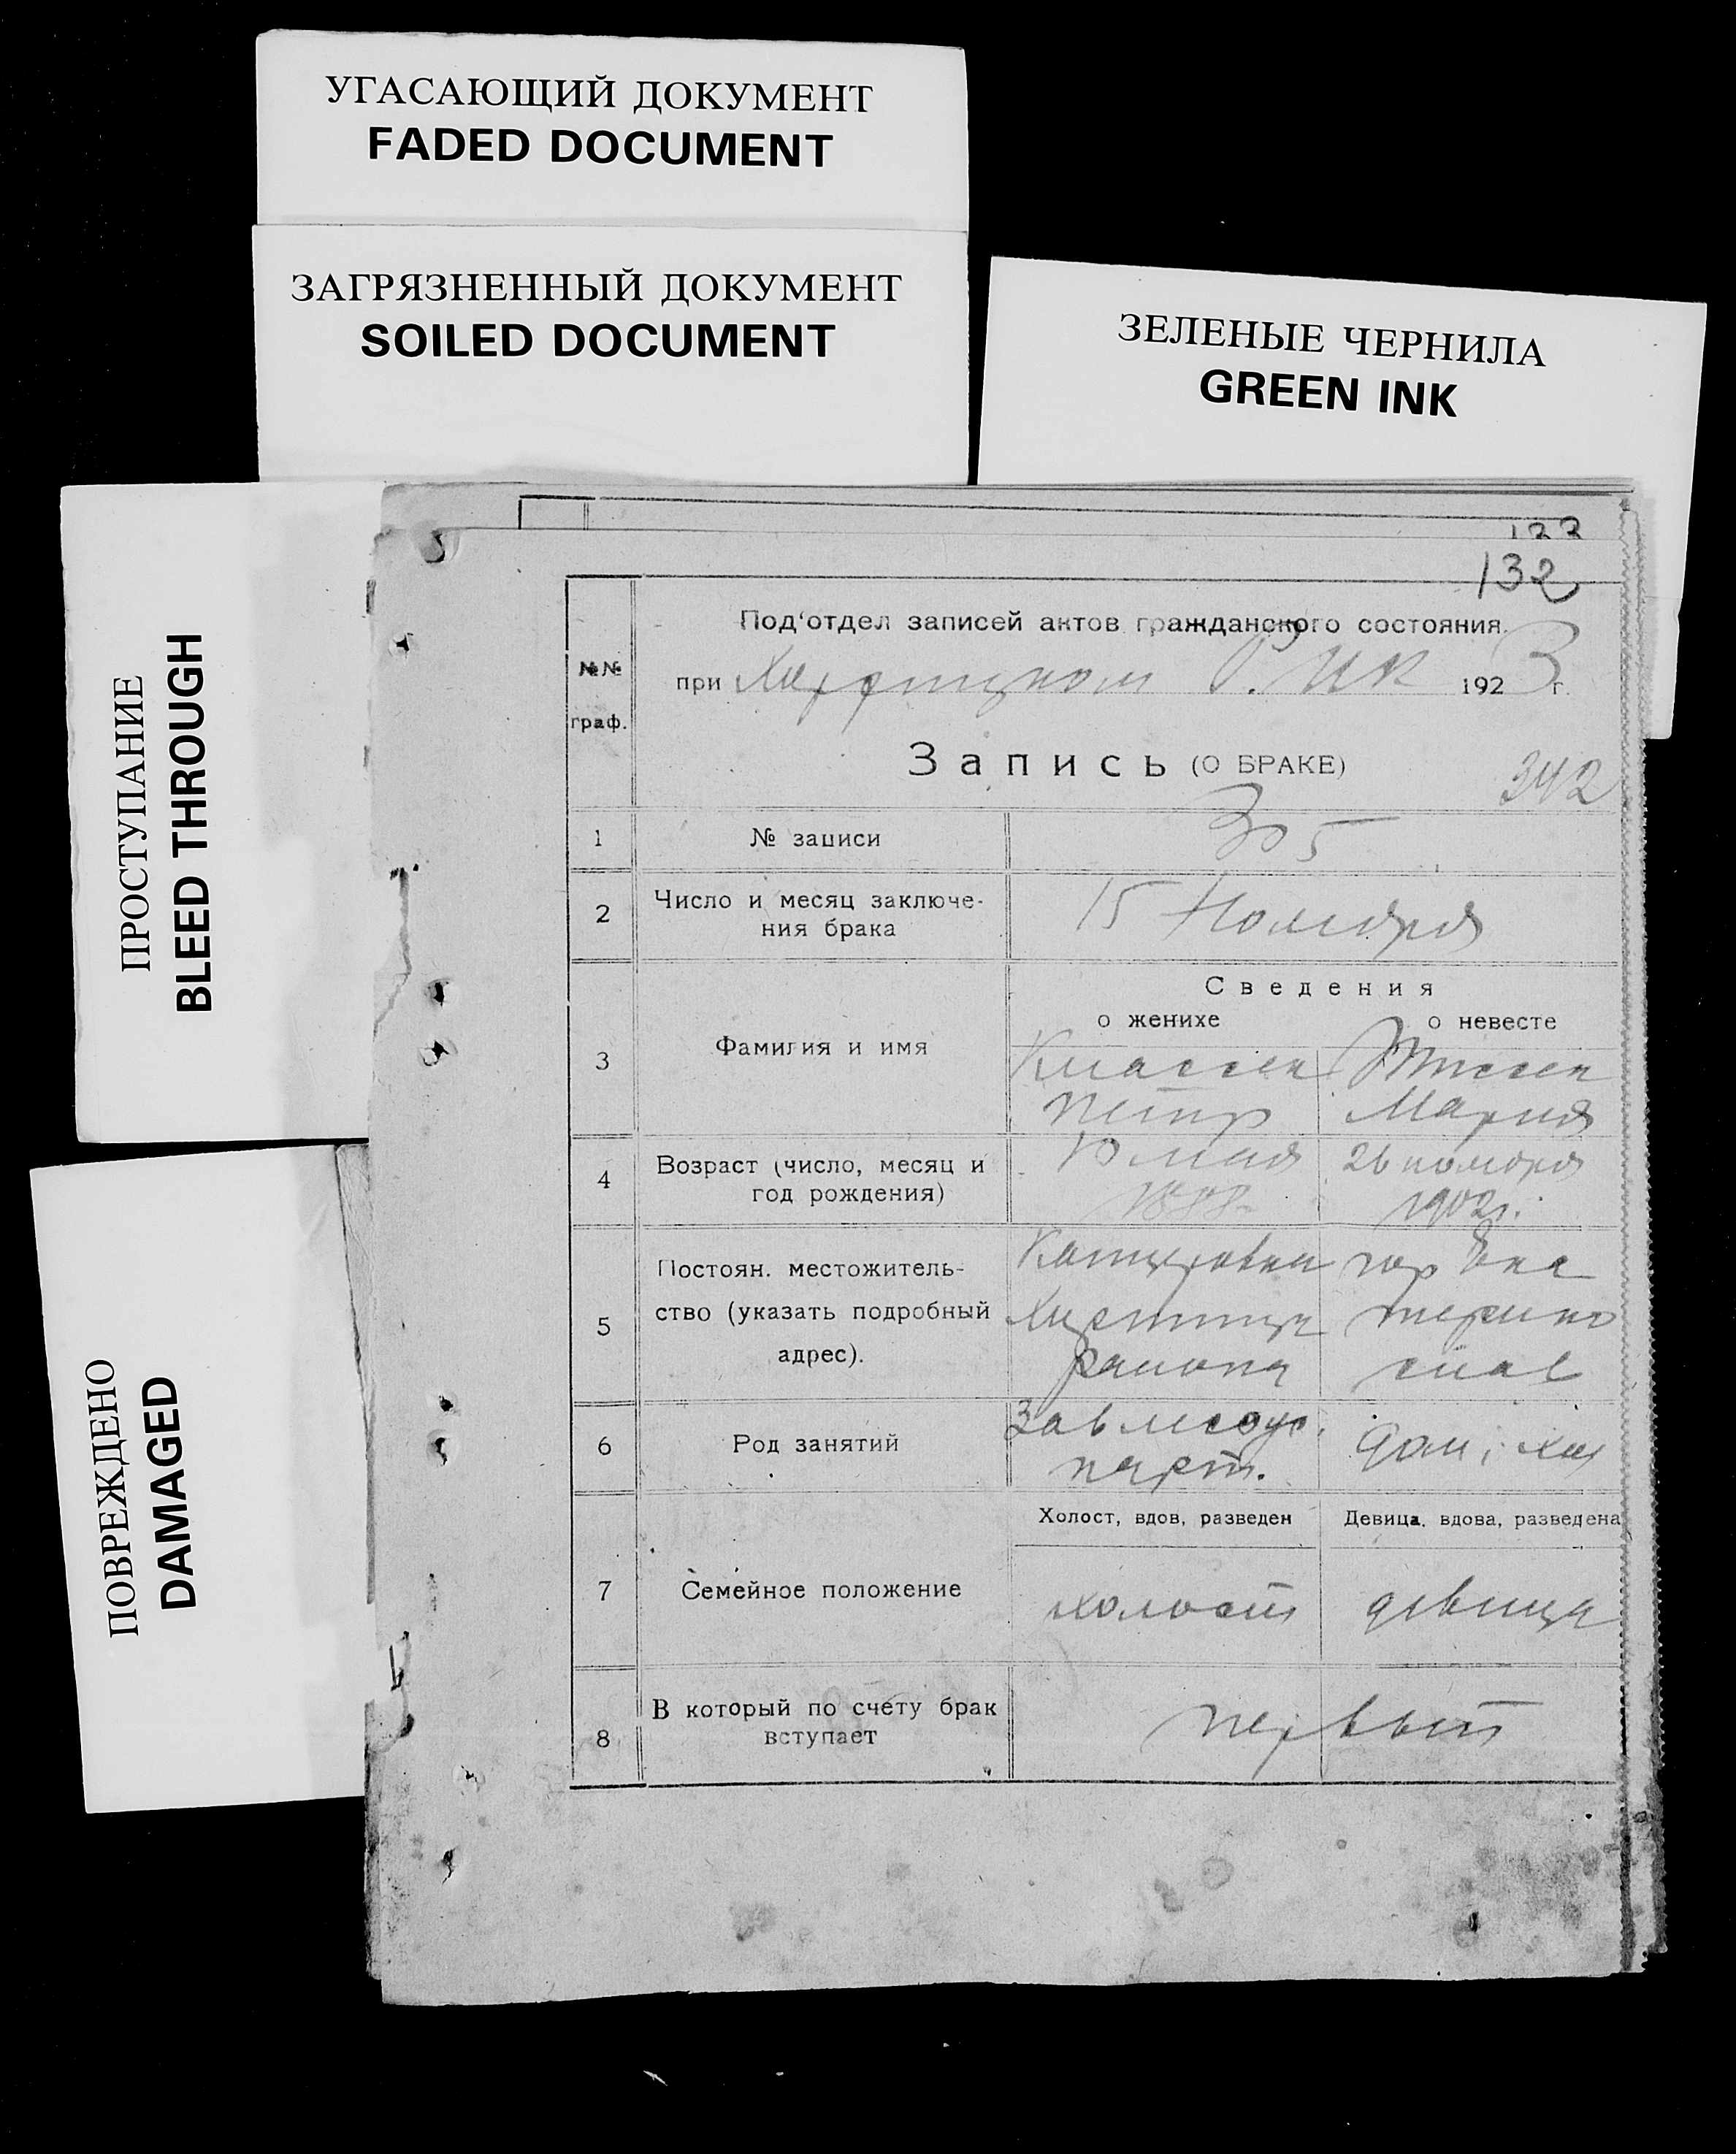 УГАСАЮЩИЙ ДОКУМЕНТ
FADED DOCUMENT
ЗАГРЯЗНЕННЫЙ ДОКУМЕНТ
SOILED DOCUMENT
ЗЕЛЕНЫЕ ЧЕРНИЛА
GREEN INK
ПРОСТУПАНИЕ
BLEED THROUGH
ПОВРЕЖДЕНО
DAMAGED
133
132
Под'отдел записей актов гражданского состояния.
№№
граф.
при Р. ИК 1923 г.
Запись (О БРАКЕ)
342
1 № записи 305
2 Число и месяц заключе-
ния брака
15 Ноября
Сведения
о женихе о невесте
3 Фамилия и имя
Классен Тиссен
Петр Мария
4 Возраст (число, месяц и
год рождения)
10 мая 26 ноября
1902г.
5 Постоян. местожитель-
ство (указать подробный
адрес).
гор Ека
терино
района слав
6 Род занятий
Зав
дом. хоз
Холост, вдов, разведен Девица, вдова, разведена
7 Семейное положение
холост девица
8 В который по счету брак
вступает
первый